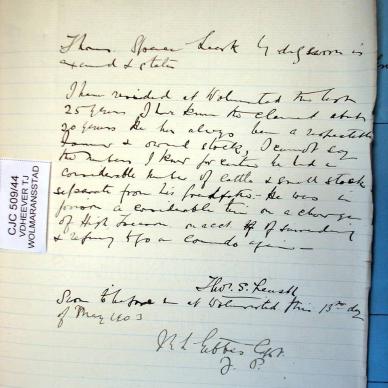 Thomas Spencer Leask duly sworn is
examd & states
I have resided at Wolmarsstad the last
25 years I have known the claimant about
20 years He has always been a respectable
farmer & owned stock, I cannot say
the numbers I know for certain he had a
considerable number of cattle & small stock
separate from his grandfather. He was in
prison a considerable time on a charge
of High Treason on acct of surrendering
& refusing to go on Commando again -
Thos. S. Leask
Sworn to before me at Wolmarsstad this 13th day
of May 1903
Capt.
J. P.
CJC 509/44
VDHEEVER TJ
WOLMARANSSTAD